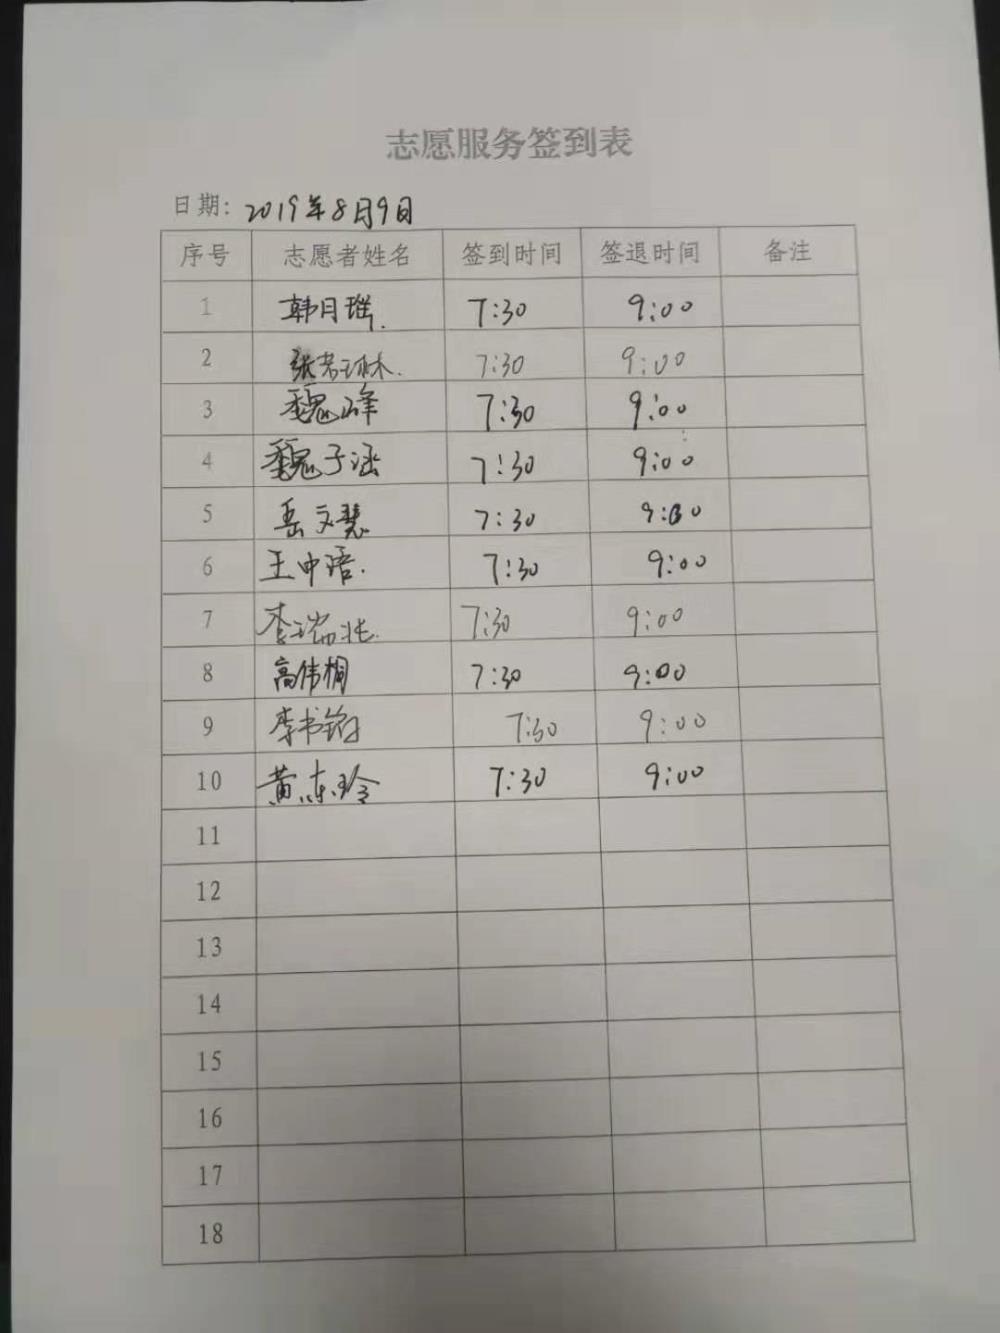 志愿服务签到表
日期: 2019年8月9日
序号 志愿者姓名 签到时间 签退时间 备注
1 韩月瑶. 7:30 9:00
2 张若琳. 7:30 9:00
3 魏峰 7:30 9:00
4 魏子涵 7:30 9:00
5 岳文慧 7:30 9:00
6 王中语. 7:30 9:00
7 李瑞 7:30 9:00
8 高伟桐 7:30 9:00
9 李书 7:30 9:00
10 黄东玲 7:30 9:00
11
12
13
14
15
16
17
18